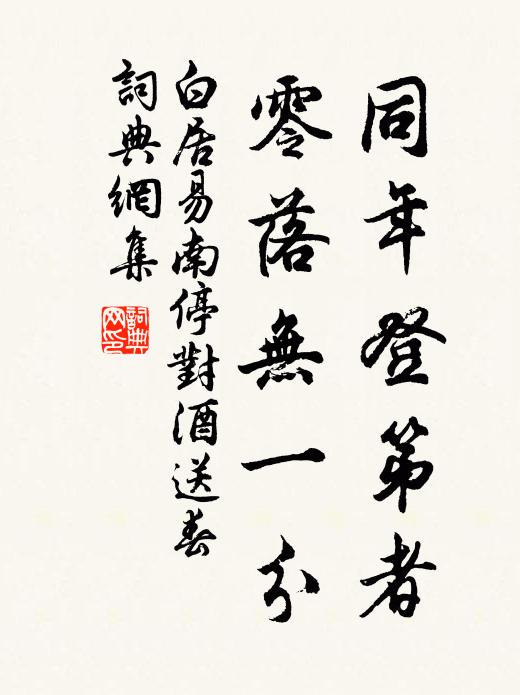 同年登第者
零落無一分
白居易南停對酒送春
詞典網集
詞典网印